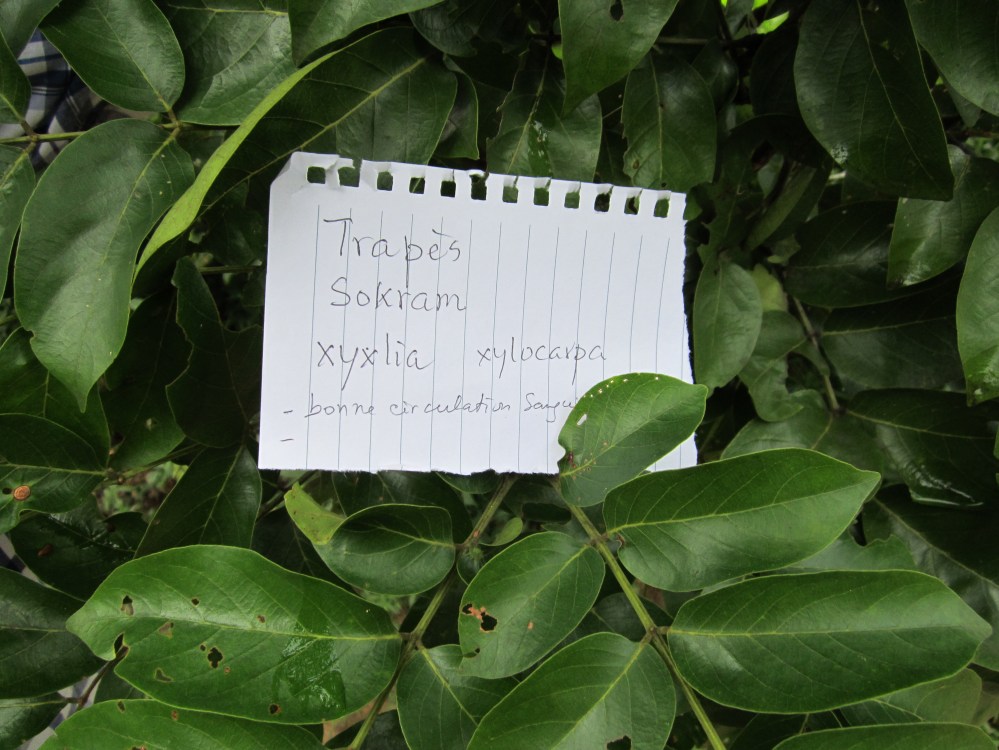 Trapès
Sokram
xyxlia xylocarpa
- bonne circulation
-